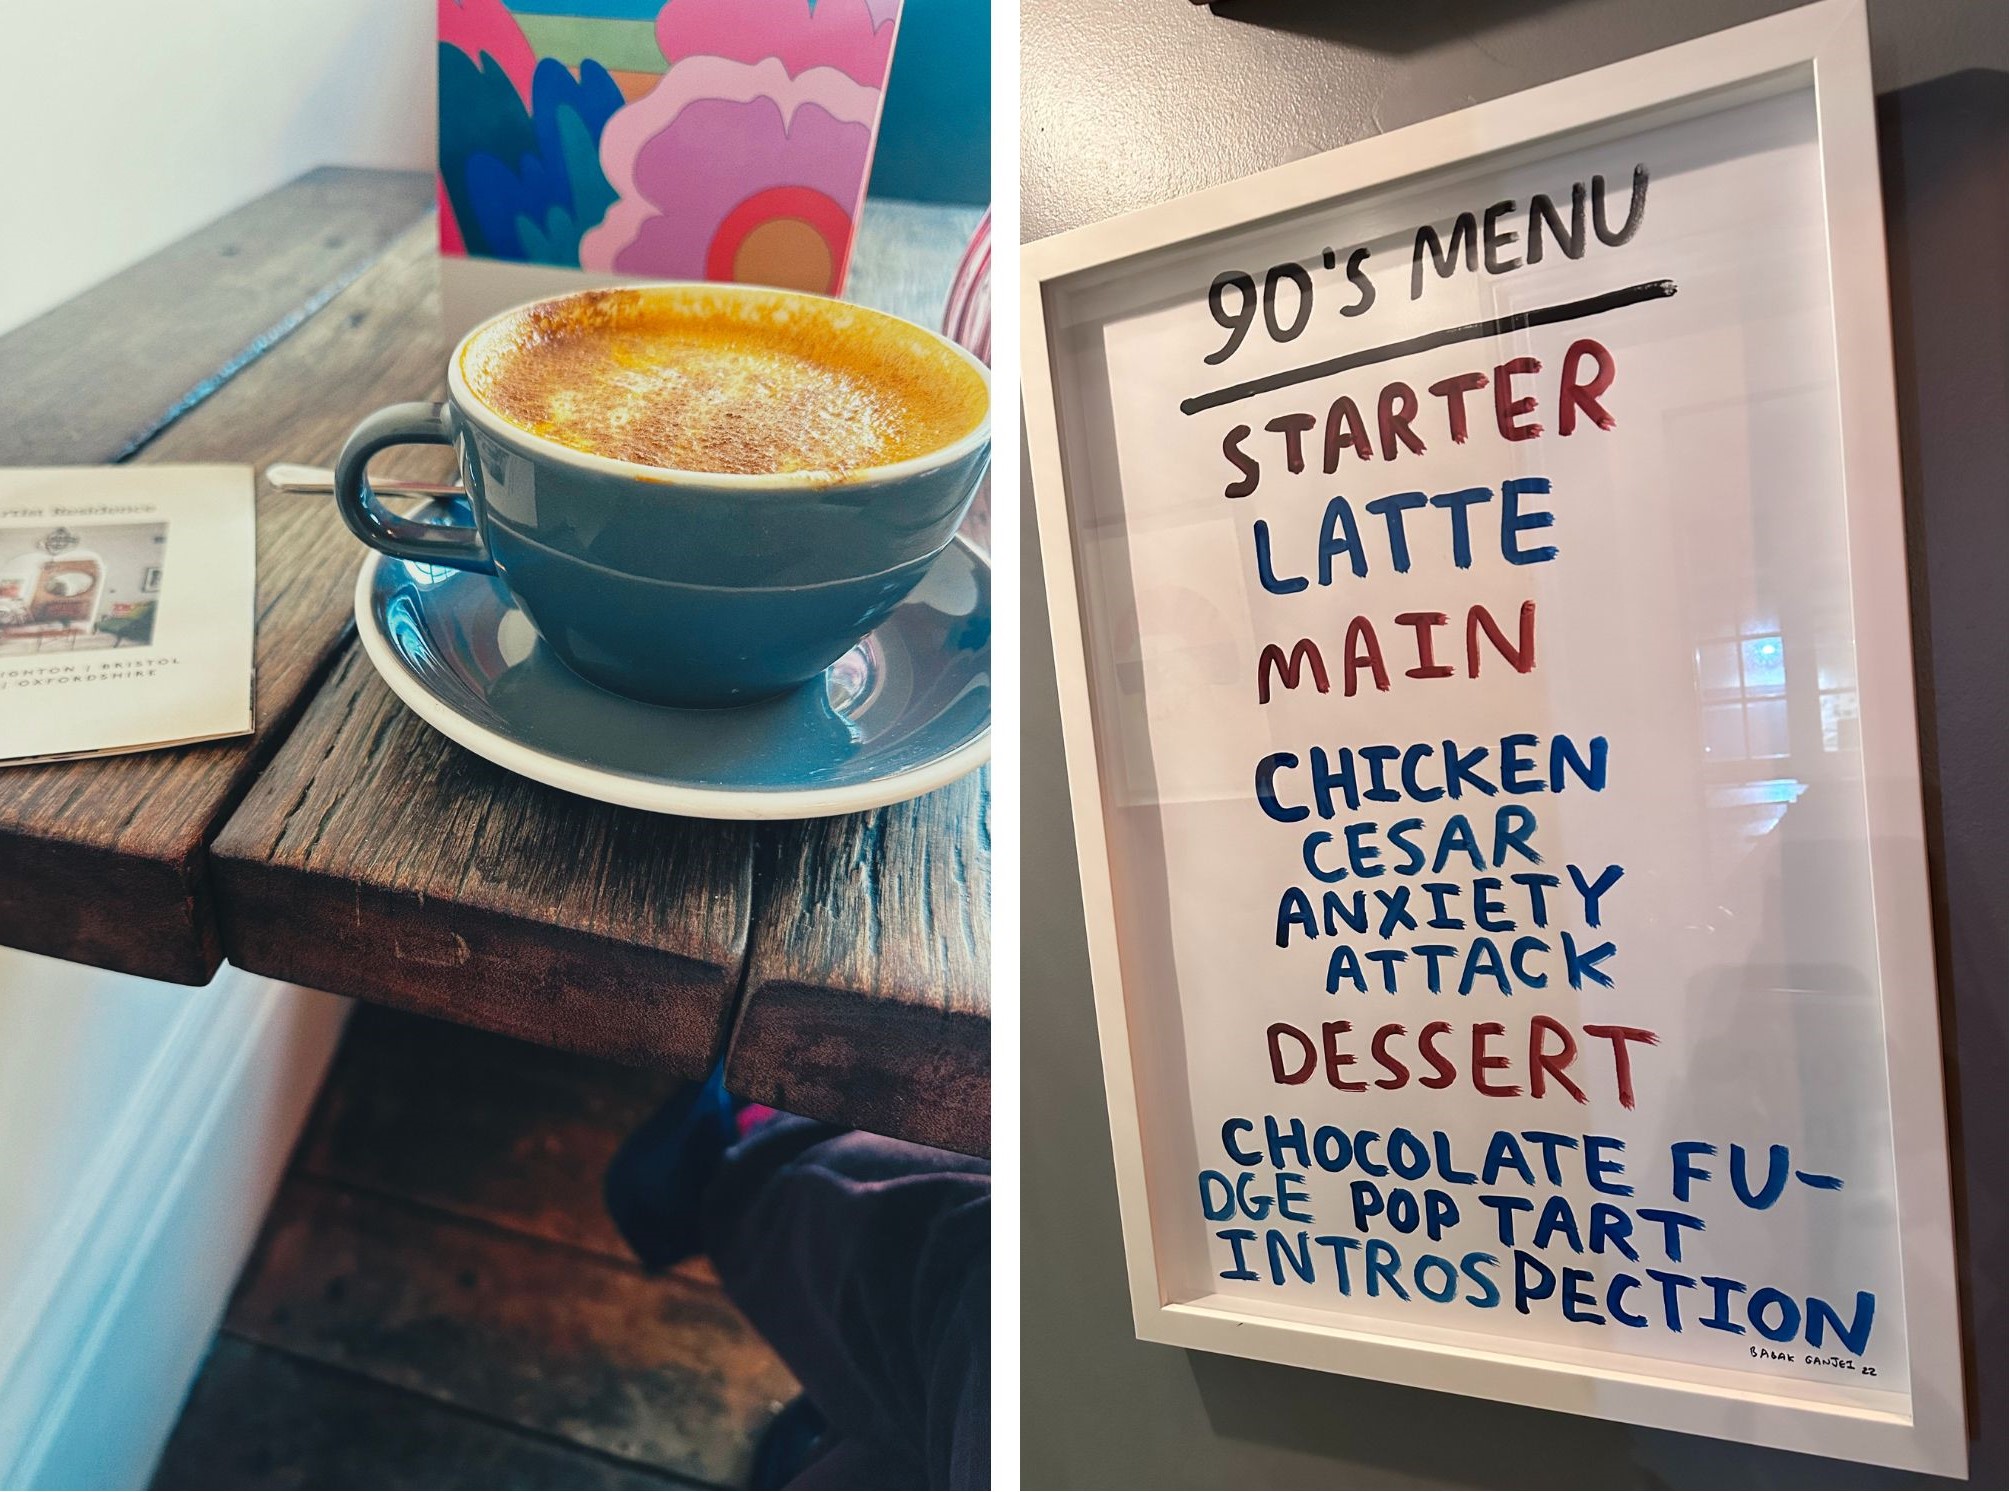 Residence
BRISTOL
| OXFORDSHIRE
90'S MENU
STARTER
LATTE
MAIN
CHICKEN
CESAR
ANXIETY
ATTACK
DESSERT
CHOCOLATE FU-
DGE POP TART
INTROSPECTION
BABAK GANJEI 22